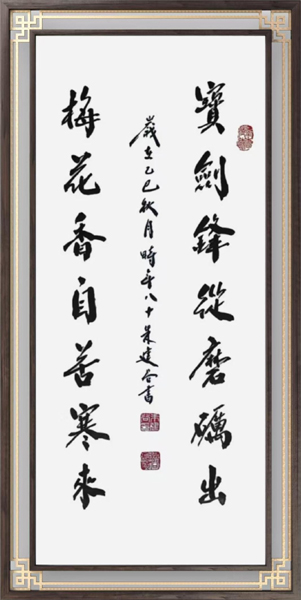 寶劍鋒從磨礪出
梅花香自苦寒來
歲在乙巳秋月時年八十朱建合書